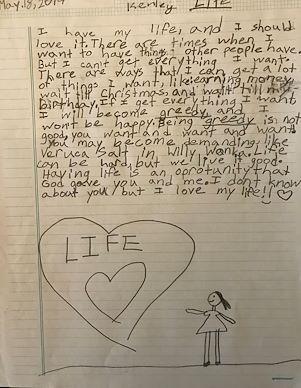 May.18,2019 Kenley LIFE
I have my life, and I should
love it. There are times when I
want to have things other people have.
But I can't get everything I want.
There are ways that I can get a lot
of things I want, like earning money,
wait till Christmas, and wait till my
birthday. If I get everything I want
I will become greedy and I
won't be happy. Being greedy is not
good, you want and want and want
You may become demanding like
Veruca Salt in Willy Wonka. Life
can be hard, but we live it good.
Having life is an oprotunity that
God gave you and me. I don't know
about you but I love my life!!
LIFE